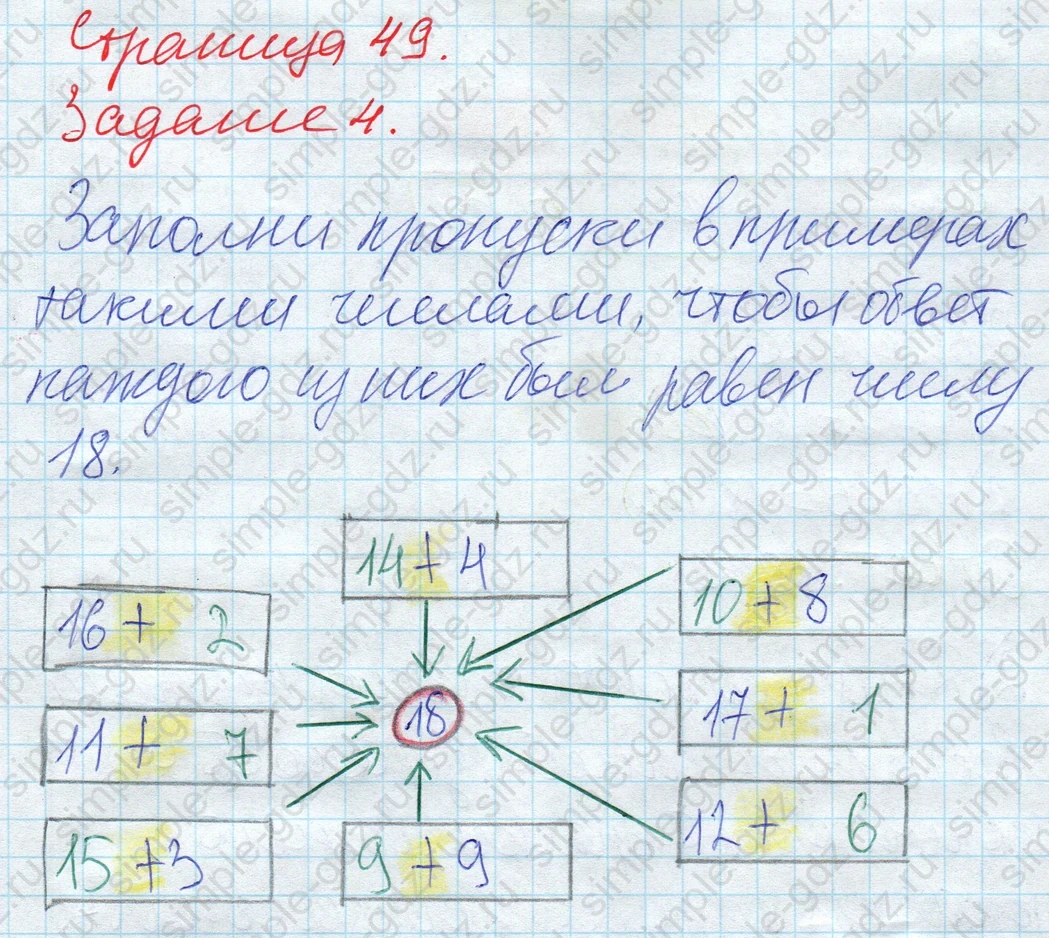 Страница 49.
Задание 4.
Заполни пропуски в примерах
такими числами, чтобы ответ
каждого из них был равен числу
18.
14 + 4
16 + 2
10 + 8
18
11 + 7
17 + 1
15 + 3
9 + 9
12 + 6
simple-gdz.ru